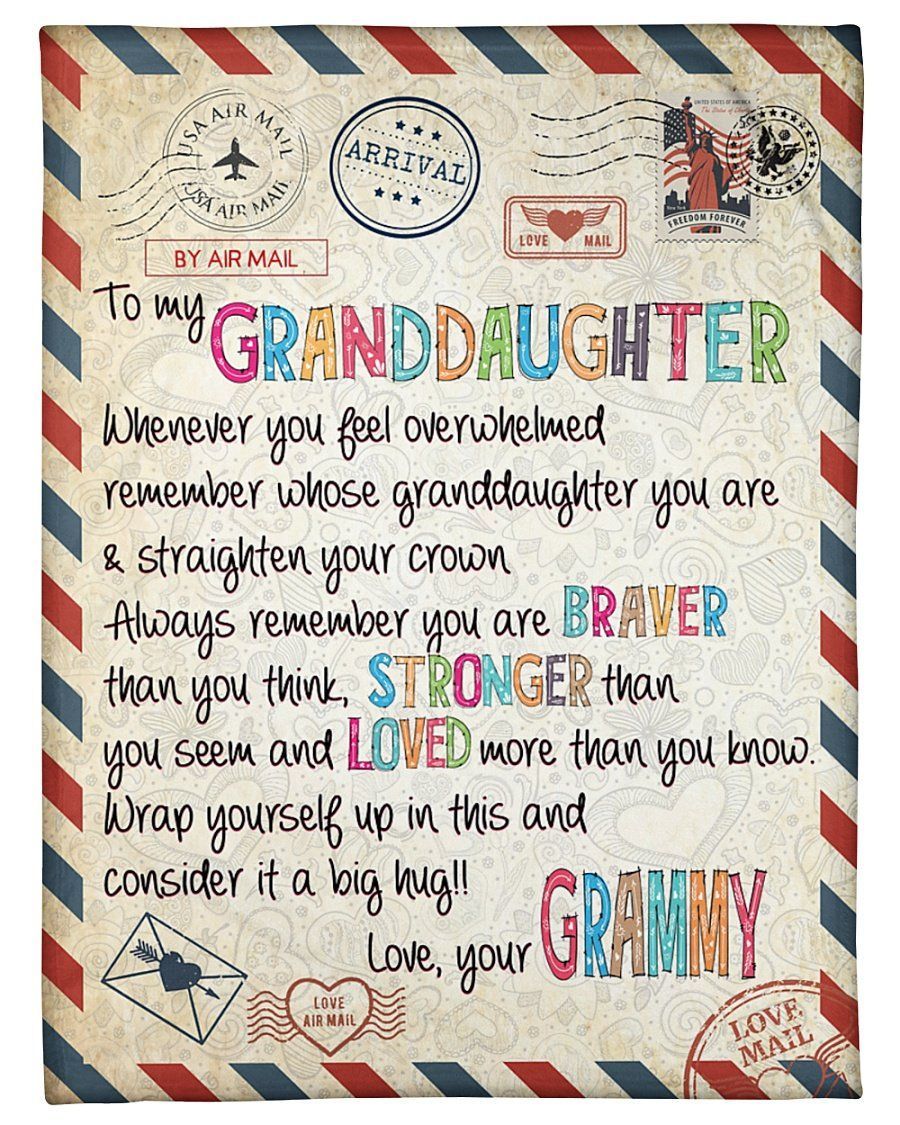 USA AIR MAIL
USA AIR MAIL
ARRIVAL
UNITED STATES OF AMERICA
The Statue of Liberty
New York
FREEDOM FOREVER
LOVE MAIL
BY AIR MAIL
To my GRANDDAUGHTER
Whenever you feel overwhelmed
remember whose granddaughter you are
& straighten your crown
Always remember you are BRAVER
than you think, STRONGER than
you seem and LOVED more than you know.
Wrap yourself up in this and
consider it a big hug!!
Love, your GRAMMY
LOVE
AIR MAIL
LOVE
MAIL